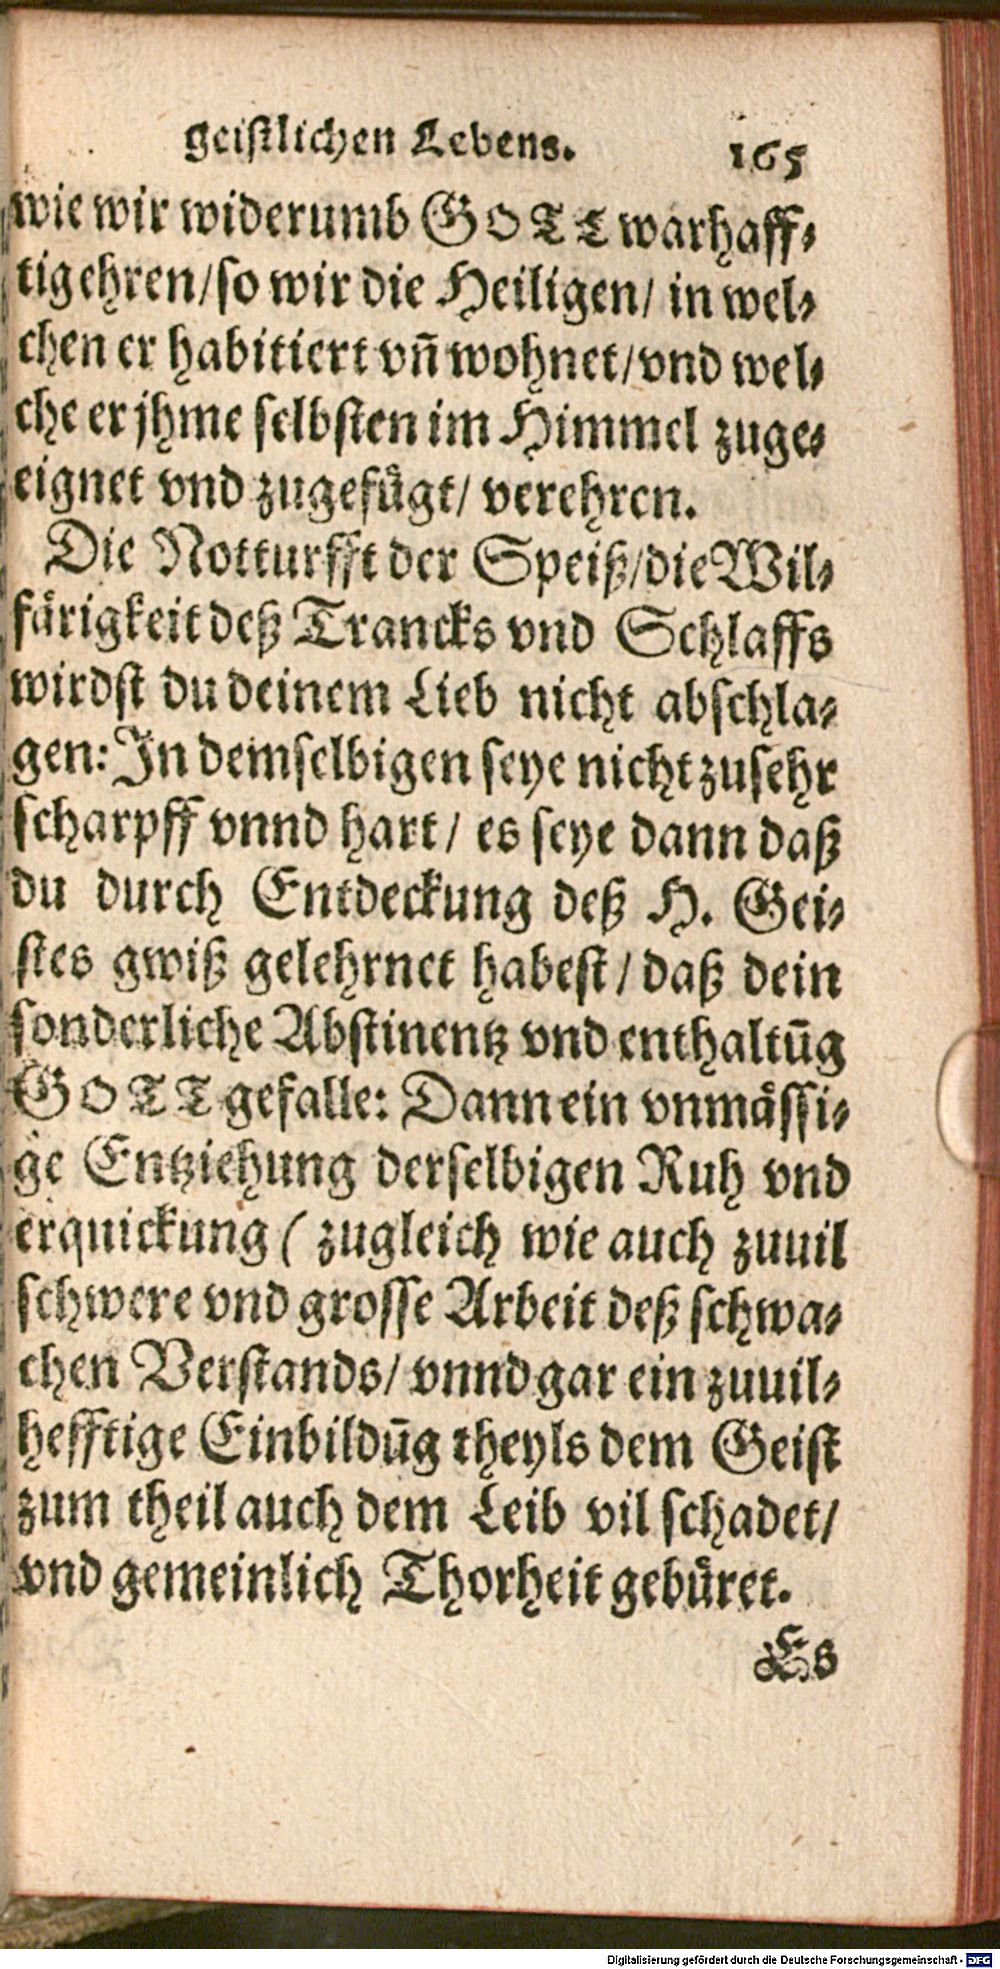 geistlichen Lebens. 165
wie wir widerumb GOTT warhaff-
tig ehren/so wir die Heiligen/ in wel-
chen er habitiert vñ wohnet/vnd wel-
che er jhme selbsten im Himmel zuge-
eignet vnd zugefügt/ verehren.
Die Notturfft der Speiß/die Wil-
färigkeit deß Trancks vnd Schlaffs
wirdst du deinem Lieb nicht abschla-
gen: In demselbigen seye nicht zusehr
scharpff vnnd hart/ es seye dann daß
du durch Entdeckung deß H. Gei-
stes gwiß gelehrnet habest/ daß dein
sonderliche Abstinentz vnd enthaltūg
GOTT gefalle: Dann ein vnmässi-
ge Entziehung derselbigen Ruh vnd
erquickung (zugleich wie auch zuuil
schwere vnd grosse Arbeit deß schwa-
chen Verstands/ vnnd gar ein zuuil-
hefftige Einbildūg theyls dem Geist
zum theil auch dem Leib vil schadet/
vnd gemeinlich Thorheit gebüret.
Es
Digitalisierung gefördert durch die Deutsche Forschungsgemeinschaft - DFG